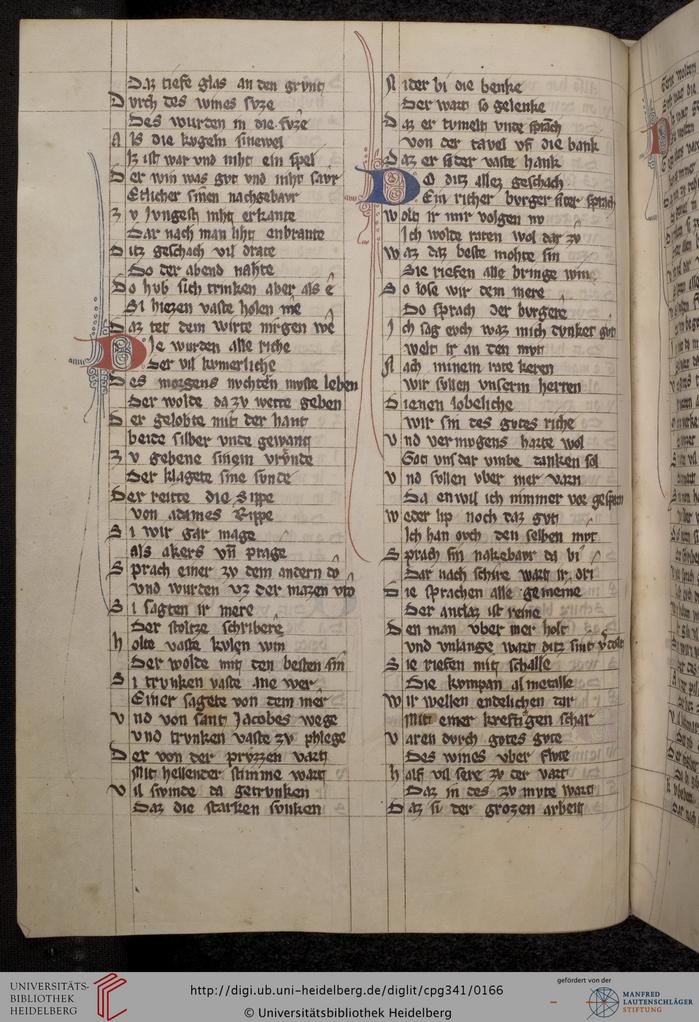 Daz tiefe glas an den grunt
Durch des wines suze
Des wurden in die fuze
Als die kugeln sinewel
Iz ist war vnd niht ein spel
Der win was gvt vnd niht savr
Etlicher sinen nachgebavr
Zv Jvngest niht erkante
Dar nach man liht enbrante
Ditz geschach vil drate
Do der abend nahte
Do hvb sich trinken aber als e
Si hiezen vaste holen me
Daz tet dem wirte nirgen we
Die wurden alle riche
Der vil kvmerliche
Des morgens nvchtern mvste leben
Der wolde da zv wette geben
Der gelobte mit der hant
beide silber vnde gewant
Zv gebene sinem vrvnde
Der klagete sine svnde
Der reitte die Sippe
von adames Rippe
Si wir gar mage
als akers vñ prage
Sprach einer zv dem andern do
vnd wurden vz der mazen vro
Si sagten ir mere
Der stoltze schribere
Holte vaste kvlen win
Der wolde mit den besten sin
Si trvnken vaste ane wer
Einer sagete von dem mer
Vnd von sant Jacobes wege
vnd trvnken vaste zv phlege
Der von der prvzzen vart
Mit hellender stimme wart
Vil swinde da getrvnken
Daz die starken svnken
Nider bi die benke
Der wart so gelenke
Daz er tvmelt vnde sprach
von der tavel vf die bank
Daz er sider vaste hank
Do ditz allez geschach
Ein richer bvrger sider sprach
Wolt ir mir volgen nv
Ich wolde raten wol dar zv
Waz daz beste mohte sin
Sie riefen alle bringe win
So lose wir dem mere
Do sprach der bvrgere
Ich sag evch waz mich dvnket gvt
welt ir an den mvt
Nach minem rate keren
wir svllen vnserm herren
Dienen lobeliche
wir sin des gvtes riche
Vnd vermvgens harte wol
Got vns dar vmbe danken sol
Vnd svllen vber mer varn
Da enwil ich nimmer vor gesparn
Weder lip noch daz gvt
Ich han ovch den selben mvt
Sprach sin nakebavr da bi
Dar nach schire wart ir dri
Die sprachen alle gemeine
Der antlaz ist reine
Den man vber mer holt
vnd vnlange wart ditz sint v̄dolt
Sie riefen mit schalle
Die kvmpan al metalle
Wir wellen endelichen dar
Mit einer kreftigen schar
Varen dvrch gotes gvte
Des wines vber flvte
Half vil sere zv der vart
Daz in des zv mvte wart
Daz si der grozen arbeit
UNIVERSITÄTS-
BIBLIOTHEK
HEIDELBERG
http://digi.ub.uni-heidelberg.de/diglit/cpg341/0166
© Universitätsbibliothek Heidelberg
gefördert von der
MANFRED
LAUTENSCHLÄGER
STIFTUNG